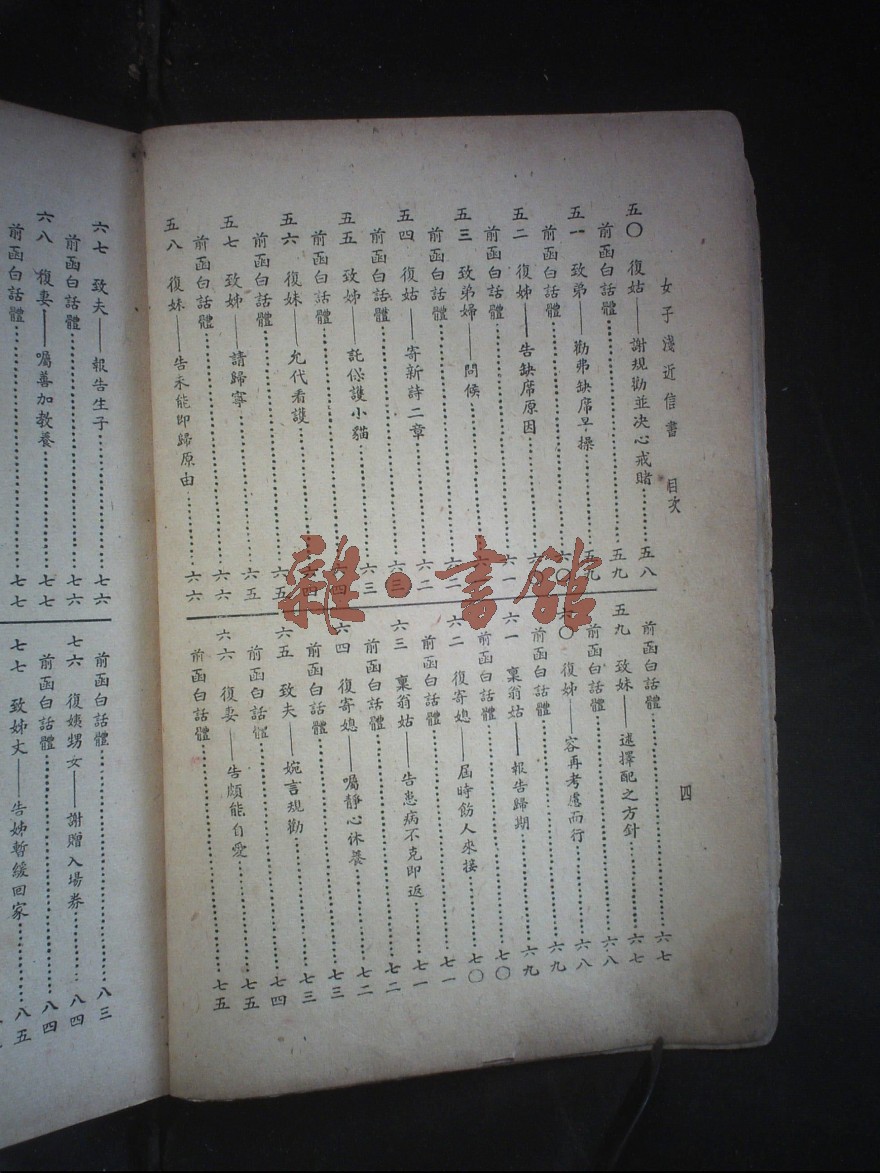 女子淺近信書　目次
四
五〇　復姑——謝規勸並决心戒賭……五八
前函白話體……五九
五一　致弟——勸弗缺席早操……五九
前函白話體……六〇
五二　復姊——告缺席原因……六〇
前函白話體……六一
五三　致弟婦——問候……
前函白話體……六二
五四　復姑——寄新詩二章……六二
前函白話體……六三
五五　致姊——託保護小貓……六三
前函白話體……六四
五六　復妹——允代看護……六四
前函白話體……六五
五七　致姊——請歸寧……六五
前函白話體……六六
五八　復妹——告未能即歸原由……六六
前函白話體……六七
五九　致妹——述擇配之方針……六七
前函白話體……六八
六〇　復姊——容再考慮而行……六八
前函白話體……六九
六一　稟翁姑——報告歸期……六九
前函白話體……七〇
六二　復寄媳——屆時飭人來接……七〇
前函白話體……七一
六三　稟翁姑——告患病不克即返……七一
前函白話體……七二
六四　復寄媳——囑靜心休養……七二
前函白話體……七三
六五　致夫——婉言規勸……七三
前函白話體……七四
六六　復妻——告頗能自愛……七五
前函白話體……七五
六七　致夫——報告生子……七六
前函白話體……七六
六八　復妻——囑善加教養……七七
前函白話體……七七
前函白話體……八三
七六　復姨甥女——謝贈入場券……八四
前函白話體……八四
七七　致姊丈——告姊暫緩回家……八五
雜·書館